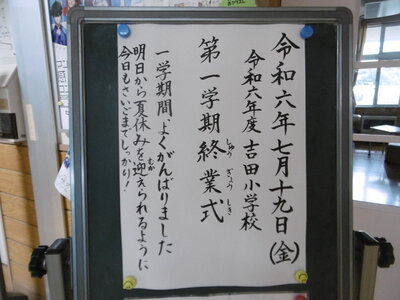 令和六年七月十九日(金)
令和六年度 吉田小学校
第一学期終業式
しゅうぎょうしき
一学期間、よくがんばりました
明日から夏休みを迎えられるように
むか
今日もさいごまでしっかり!